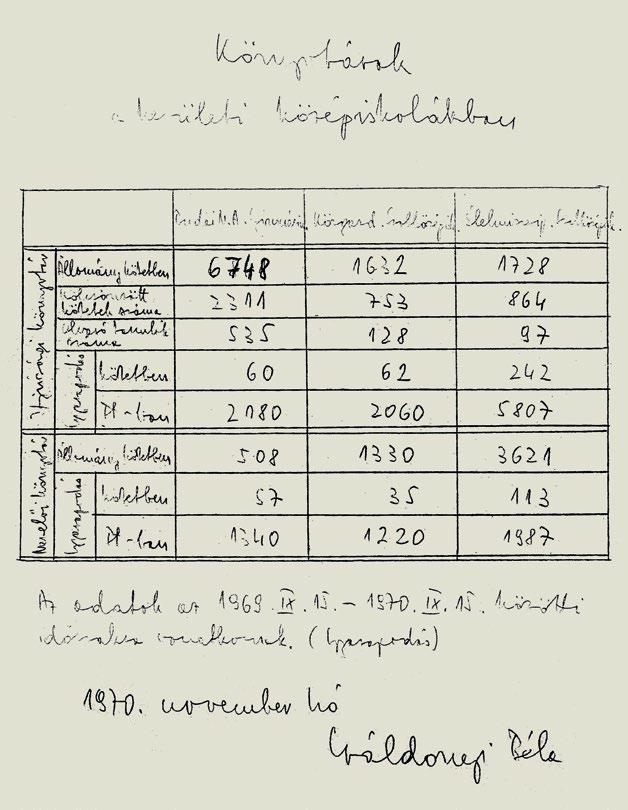 Könyvtárak
a kerületi középiskolákban
Budai N.A. Gimnázium Közgazd. Szakközépisk. Élelmiszerip. Szakközépisk.
Ifjúsági könyvtár
Állomány kötetben 6748 1632 1728
Kölcsönzött kötetek száma 2311 753 864
olvasó tanulók száma 535 128 97
gyarapodás
kötetben 60 62 242
Ft-ban 2180 2060 5807
Nevelői könyvtár
Állomány kötetben 508 1330 3621
gyarapodás
kötetben 57 35 113
Ft-ban 1340 1220 1987
Az adatok az 1969. IX. 15. – 1970. IX. 15. közötti
időszakra vonatkoznak. (gyarapodás)
1970. november hó
Béla